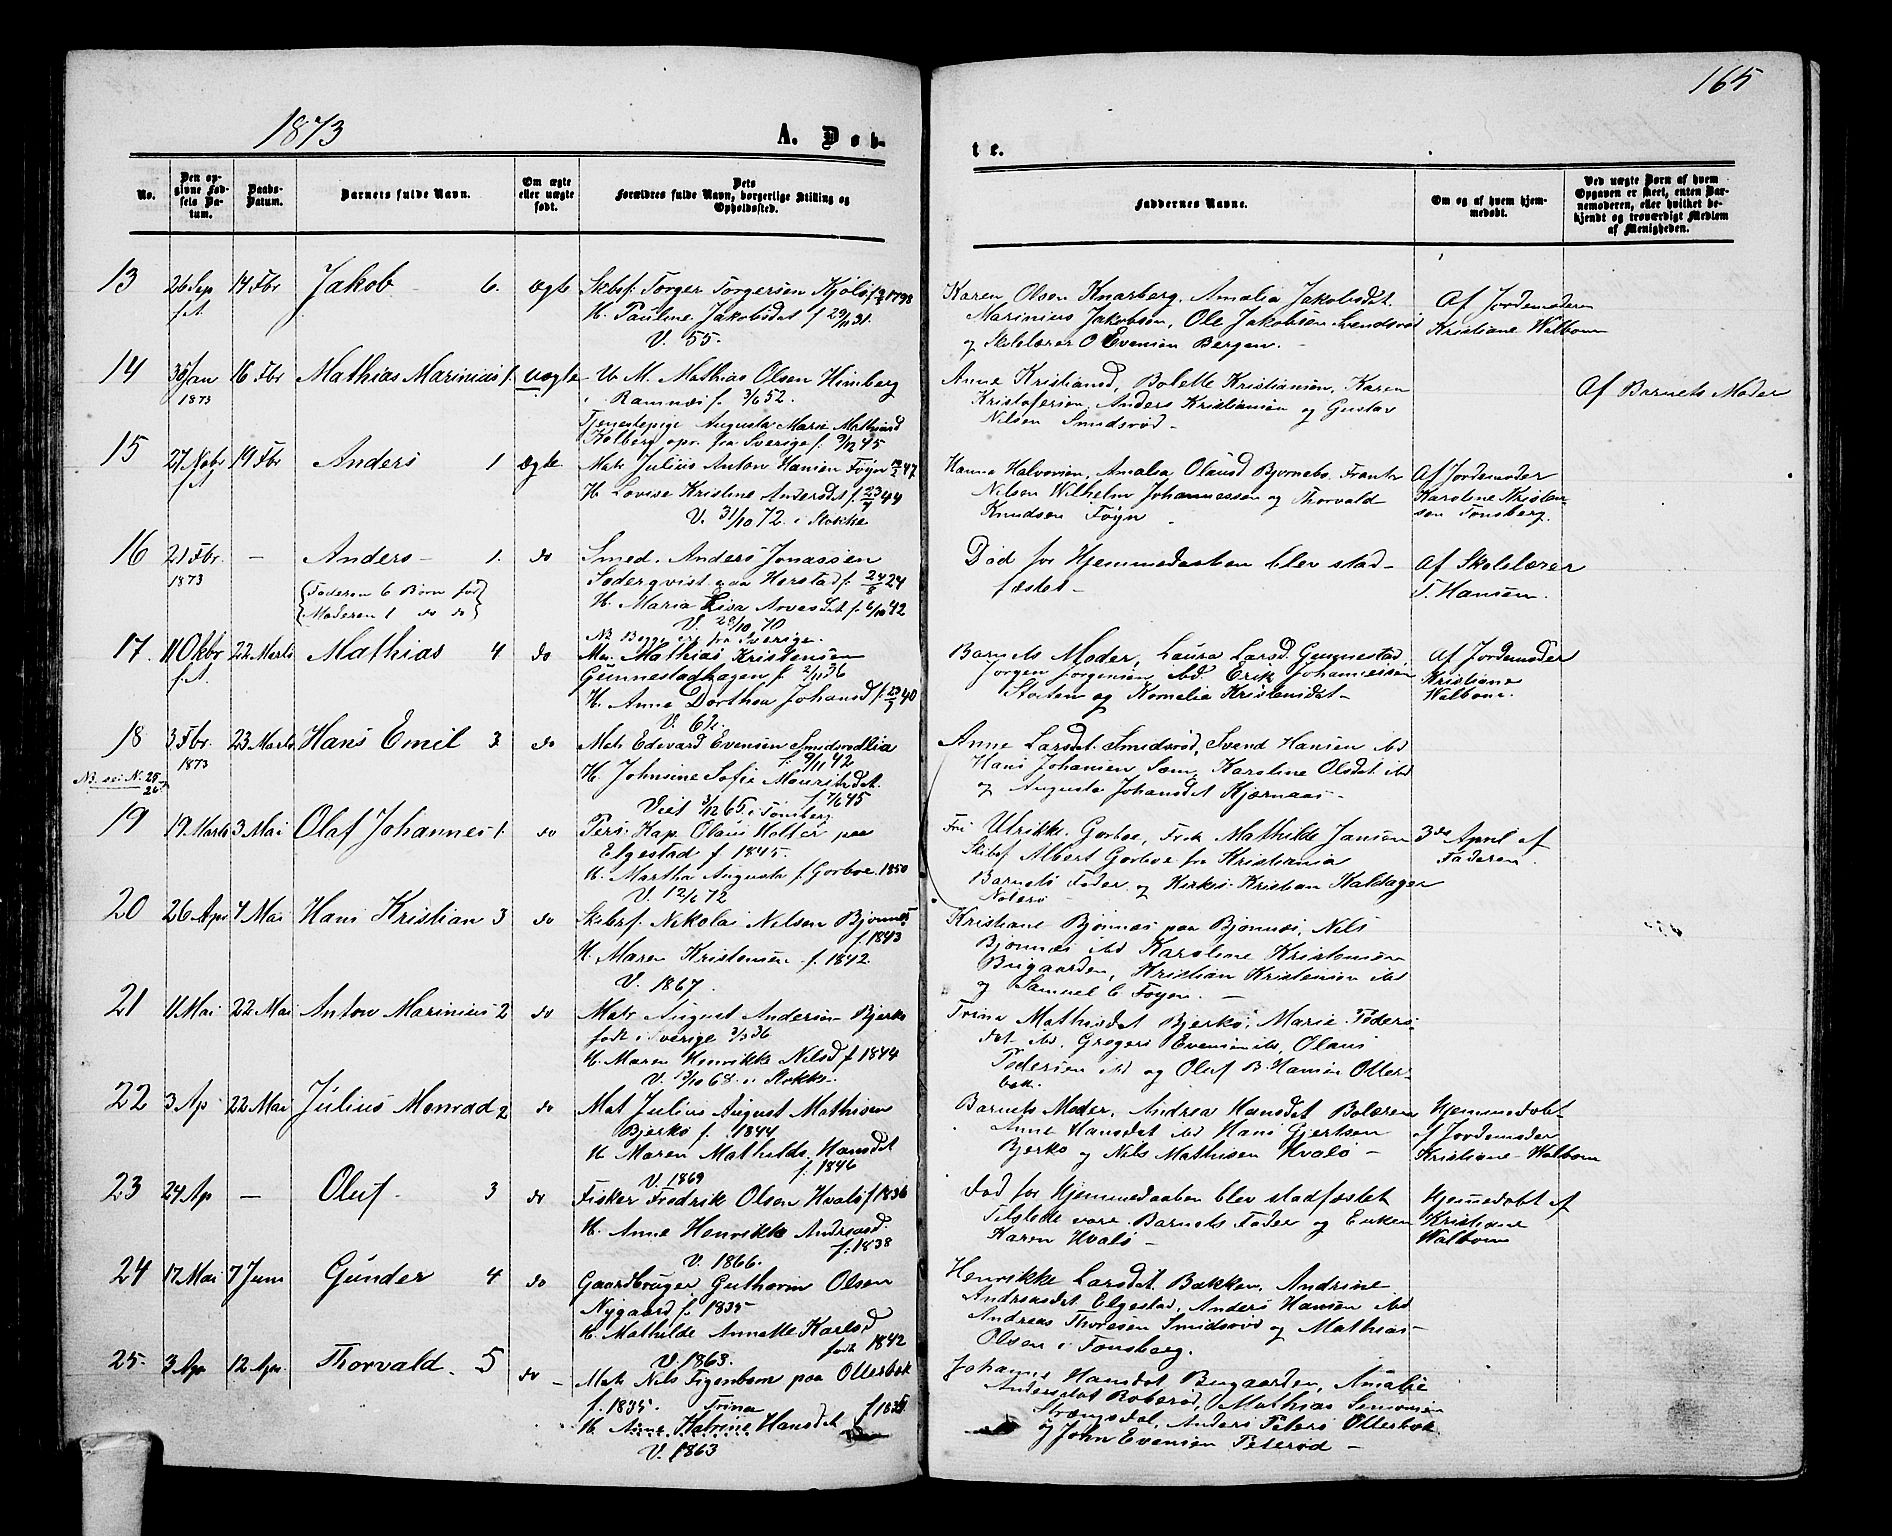 165
1873
A. Døb-
te.
No.
Den op-
givne Fød-
sels Da-
tum.
Daabs-
Datum.
Barnets fulde Navn.
Om ægte
eller uægte
født.
Dets
Forældres fulde Navn, borgerlige Stilling og
Opholdssted.
Faddernes Navne.
Om og af hvem hjem-
medøbt.
Ved uægte Børn af hvem
Opgaven er skeet, enten Bar-
nemoderen, eller hvilket be-
kjendt og troværdigt Medlem
af Menigheden.
13 26 Sep 14 Fbr Jakob 6. ægte
f.A
Skbsf. Torger Torgersen Kjølø
H. Pauline Jakobsdat f 29/11 31.
V. 55.
Karen Olsen Knarberg, Amalia Jakobsdt.
Marinius Jakobsen, Ole Jakobsen
og Skolelærer O Evensen Bergen. –
Af Jordemoderen
Kristiane Walbom
14 30 Jan 16 Fbr Mathias Marinius 1. uægte
1873
U. M. Mathias Olsen Himberg
i Ramnæs f. 3/6 52.
Tjenestepige Augusta Marie
Kolberg opr. fra Sverige f. 9/12 45
Anne Kristiansd, Bolette Kristiansen, Karen
Kristofersen, Anders Kristiansen og Gustav
Nilsen Smidsrød –
Af Barnets Moder
15 27 Nobr 19 Fbr Anders 1 ægte
f.A
Mats Julius Anton Hansen Føyn 47
H. Lovise Kristine Andersdat f. 23/9 44
V. 31/10 72. i Stokke
Hanna Halvorsen, Amalia Olausd Bjornebo, Frantz
Nilsen Wilhelm Johannessen og Thorvald
Knudsen Føyn
Af Jordemoder
Karoline Kristen-
sen Tønsberg.
16 21 Fbr. – Anders – 1. do
1873
{Faderen 6 Børn fød}
{Moderen 1 do do}
Smed. Anders Jonassen
Søderqvist paa Horstad f. 24/8 24
H. Maria Lisa f. 6/10 42
V. 28/10 70
NB Begge ere fra Sverige.
Død før Hjemmedaaben blev stad-
fæstet –
Af Skolelærer
T. Hansen.
17. 11 Oktbr 22 Marts Mathias 4 do
f.A
Mathias Kristensen
Gunnestadhagen f 2/11 36
H. Anne Dorthea Johansd f. 40
V. 62.
Barnets Moder, Laura Larsd. Gunnestad,
Jørgen Jørgensen ibd Erik Johannessen
og Kornelia Kristensdat –
Af Jordemoder
Kristiane
Walbom.
18 3 Fbr. 23 Marts Hans Emil 3. do
1873
Mats Edevard Evensen Smidsrødlia
f. 9/11 42
H. Johnsine Sofie Mouritsdat.
f 7/6 45
Viet 3/12 65. i Tønsberg
Anne Larsdat. Smidsrød, Svend Hansen ibd
Hans Johansen Sem, Karoline Olsdat ibd
og Augusta Johansdat Kjærnaas –
NB. sei N. 25
26
19 19 Marts 3 Mai Olaf Johannes 1. do
Pers. Kap. Olaus Holter paa
Elgestad f 1845.
H. Martha Augusta f. Gorboe. 1850
V. 12/6 72
Fri Ulrikke Gorboe, Frøk Mathilde Jansen
Skibsf Albert Gorboe fra Kristiania
Barnets Fader og Kirkes. Kristian Haldager
Nøterø –
3de April af
Faderen.
20 26 Apr 4 Mai Hans Kristian 3 do
Skbsf. Nikolai Nilsen Bjønnes
f. 1843
H. Maren Kristensen f. 1842.
V. 1867.
Kristiane Bjønnes paa Bjønnes, Nils
Bjønnes ibd Karoline Kristensen
Brigaarden, Kristian Kristensen ibd
og Samuel C. Føyn. –
21 11 Mai 22 Mai Anton Marinius 2 do
Mats August Andersen Bjerkø
født i Sverige 2/3 36
H. Maren Henrikke Nilsd f 1844
V. 3/10 68. i Stokke.
Trina Mathisdat Bjerkø, Marie Peders-
dat ibd, Gregers Evensen ibd, Olaus
Pedersen ibd og Oluf B. Hansen Otter-
bek.
22 3 Ap 22 Mai Julius Monrad 2 do
Mat Julius August Mathisen
Bjerkø f. 1844
H. Maren Mathilde Hansdat
f. 1846
V. 1869
Barnets Moder, Andrea Hansdat Bolæren
Anne Hansdat ibd Hans Gjertsen
Bjerkø og Nils Mathisen Hvalø –
Hjemmedøbt
af Jordemoder
Kristiane Walbom
23 24 Ap – Oluf. 3 do
Fisker Fredrik Olsen Hvalø f 1836
H. Anne Henrikke Andreasd.
f. 1838
V. 1866.
Død før Hjemmedaaben blev stadfæstet
Tilstede vare Barnets Fader og Enken
Karen Hvalø –
Hjemmedøbt af
Kristiane
Walbom
24 17 Mai 7 Juni Gunder 4 do
Gaardbruger Guthorm Olsen
Nygaard f. 1835
H. Mathilde Annette Karlsd
født 1842
V. 1863.
Henrikke Larsdat Bakken, Andrine
Andreasdat Elgestad, Anders Hansen ibd
Andreas Thoresen Smidsrød og Mathias
Olsen i Tønsberg.
25. 3 Ap 12 Apr. Thorvald. 5 do –
Mats Nils Figenbom paa Otterbek
f. 1835. Trina f 1835
H. Anne Katrine Hansdat
V. 1863
Johanne Hansdat Brigaarden, Amalie
Andersdat Roberød, Mathias Simonsen
Strængsdal, Anders Peters Otterbek
og John Evensen Peterød –